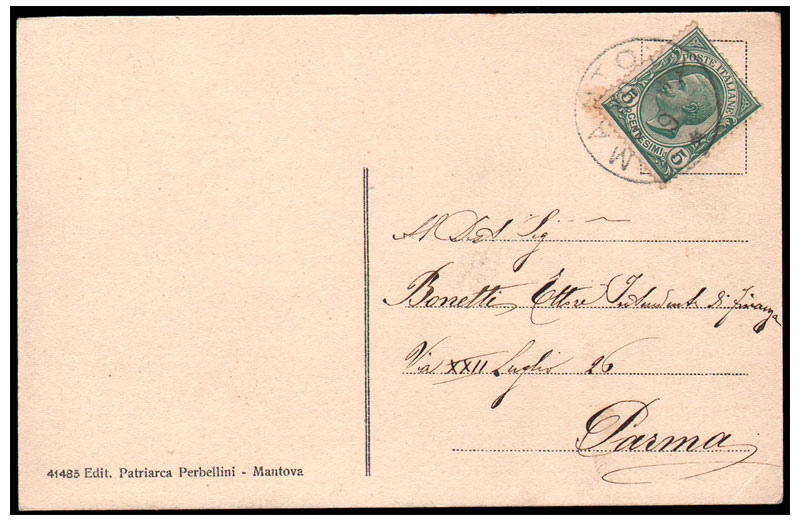 MANTOVA
POSTE ITALIANE
5 CENTESIMI 5
Bonetti Ettore Intendente di finanza
Via XXII Luglio 26
Parma
41485 Edit. Patriarca Perbellini - Mantova